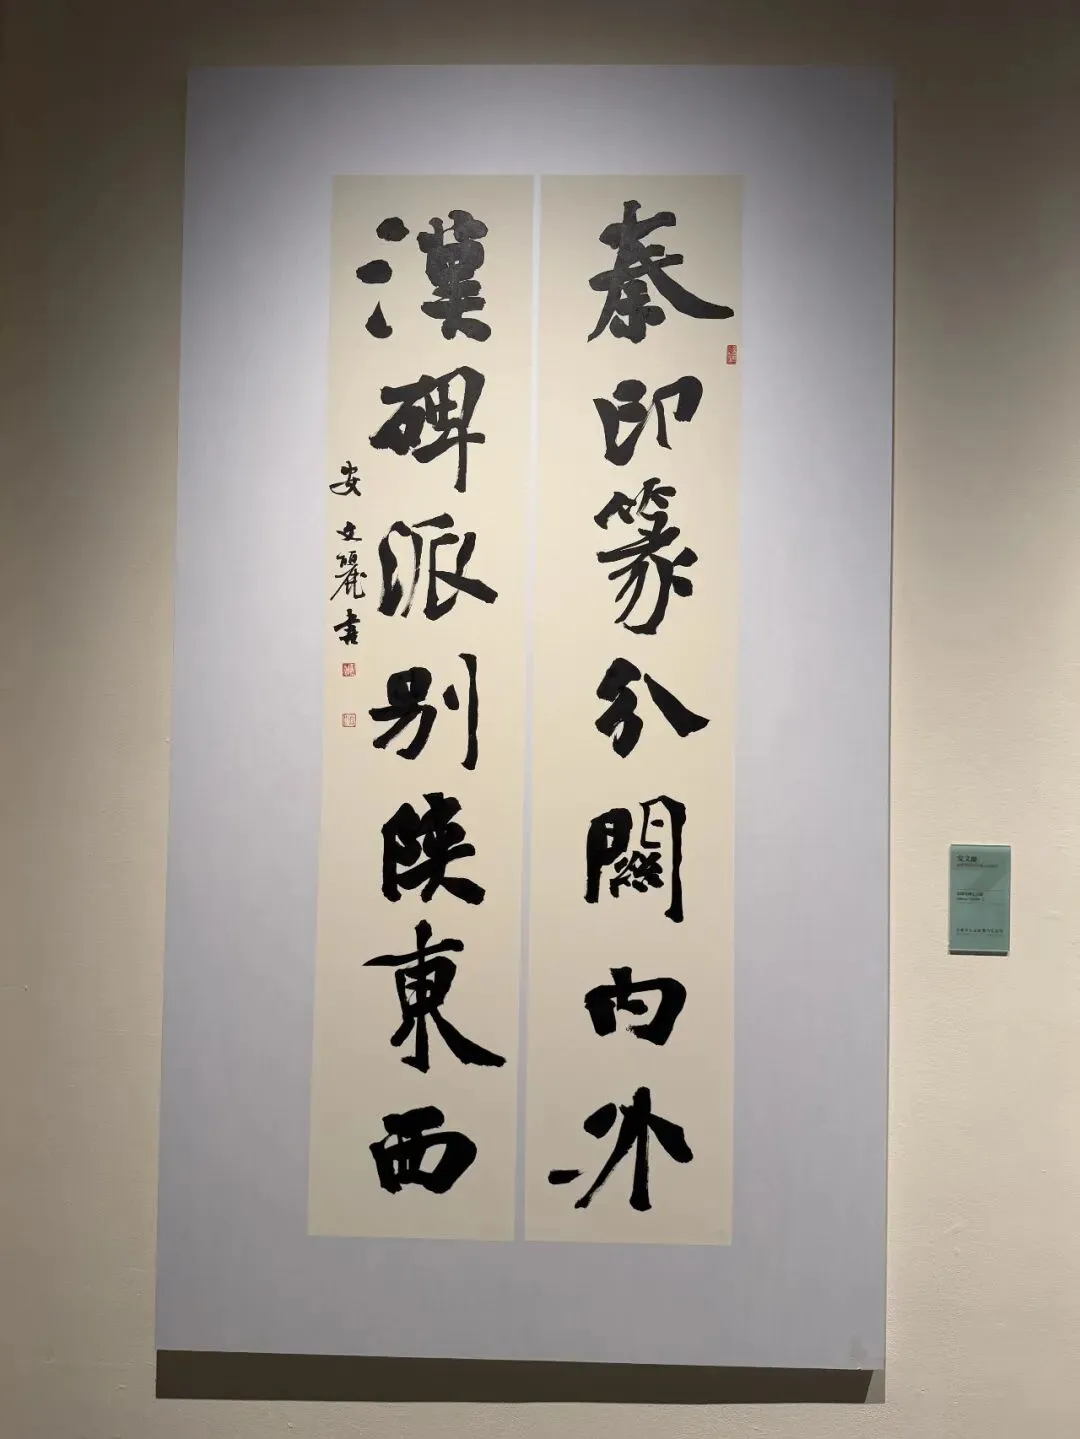 秦印篆分關内外
漢碑派别陝東西
安文麗書
安文麗